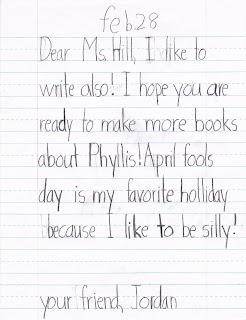 feb.28
Dear Ms. Hill, I like to
write also! I hope you are
ready to make more books
about Phyllis! April fools
day is my favorite holliday
because I like to be silly!
your friend, Jordan